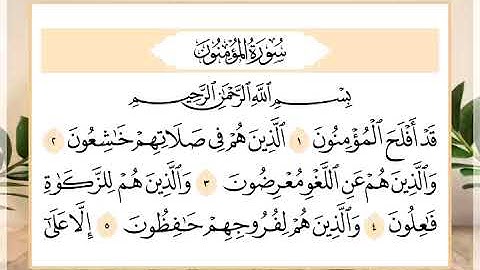 سُورَةُ المُؤْمِنُونَ
بِسْمِ اللَّهِ الرَّحْمَٰنِ الرَّحِيمِ
قَدْ أَفْلَحَ الْمُؤْمِنُونَ ١ الَّذِينَ هُمْ فِي صَلَاتِهِمْ خَاشِعُونَ ٢
وَالَّذِينَ هُمْ عَنِ اللَّغْوِ مُعْرِضُونَ ٣ وَالَّذِينَ هُمْ لِلزَّكَوٰةِ
فَاعِلُونَ ٤ وَالَّذِينَ هُمْ لِفُرُوجِهِمْ حَافِظُونَ ٥ إِلَّا عَلَىٰٓ